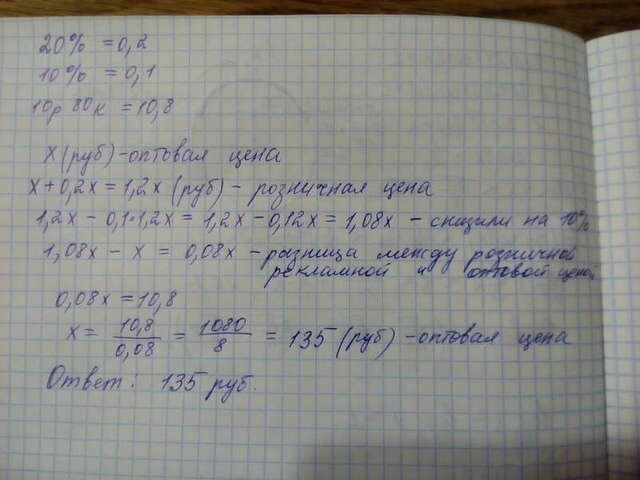 20% = 0,2
10% = 0,1
10р 80к = 10,8
х(руб) - оптовая цена
х + 0,2х = 1,2х (руб) - розничная цена
1,2х - 0,1·1,2х = 1,2х - 0,12х = 1,08х - снизили на 10%
1,08х - х = 0,08х - разница между розничной
рекламной и оптовой ценой
0,08х = 10,8
х = 10,8/0,08 = 1080/8 = 135 (руб) - оптовая цена
Ответ: 135 руб.